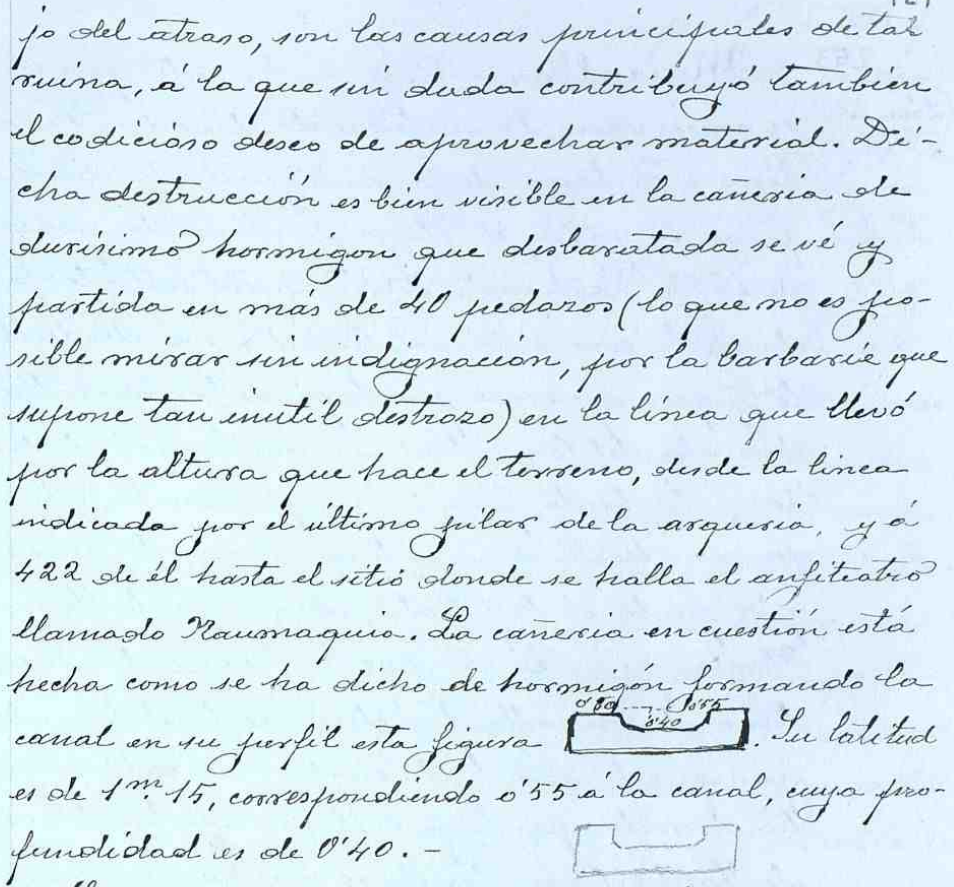 jo del atraso, son las causas principales de tal
ruina, á la que sin duda contribuyó tambien
el codicioso deseo de aprovechar material. Di-
cha destrucción es bien visible en la cañeria de
durisimo hormigon que desbaratada se vé y
partida en más de 40 pedazos (lo que no es po-
sible mirar sin indignación, por la barbarie que
supone tan inutil destrozo) en la línea que llevó
por la altura que hace el terreno, desde la linea
indicada por el último pilar de la arqueria, y á
422 de él hasta el sitio donde se halla el anfiteatro
llamado Naumaquia. La cañeria en cuestión está
hecha como se ha dicho de hormigón formando la
0'40
canal en su perfil esta figura . Su latitud
es de 1m. 15, correspondiendo 0'55 á la canal, cuya pro-
fundidad es de 0'40. -